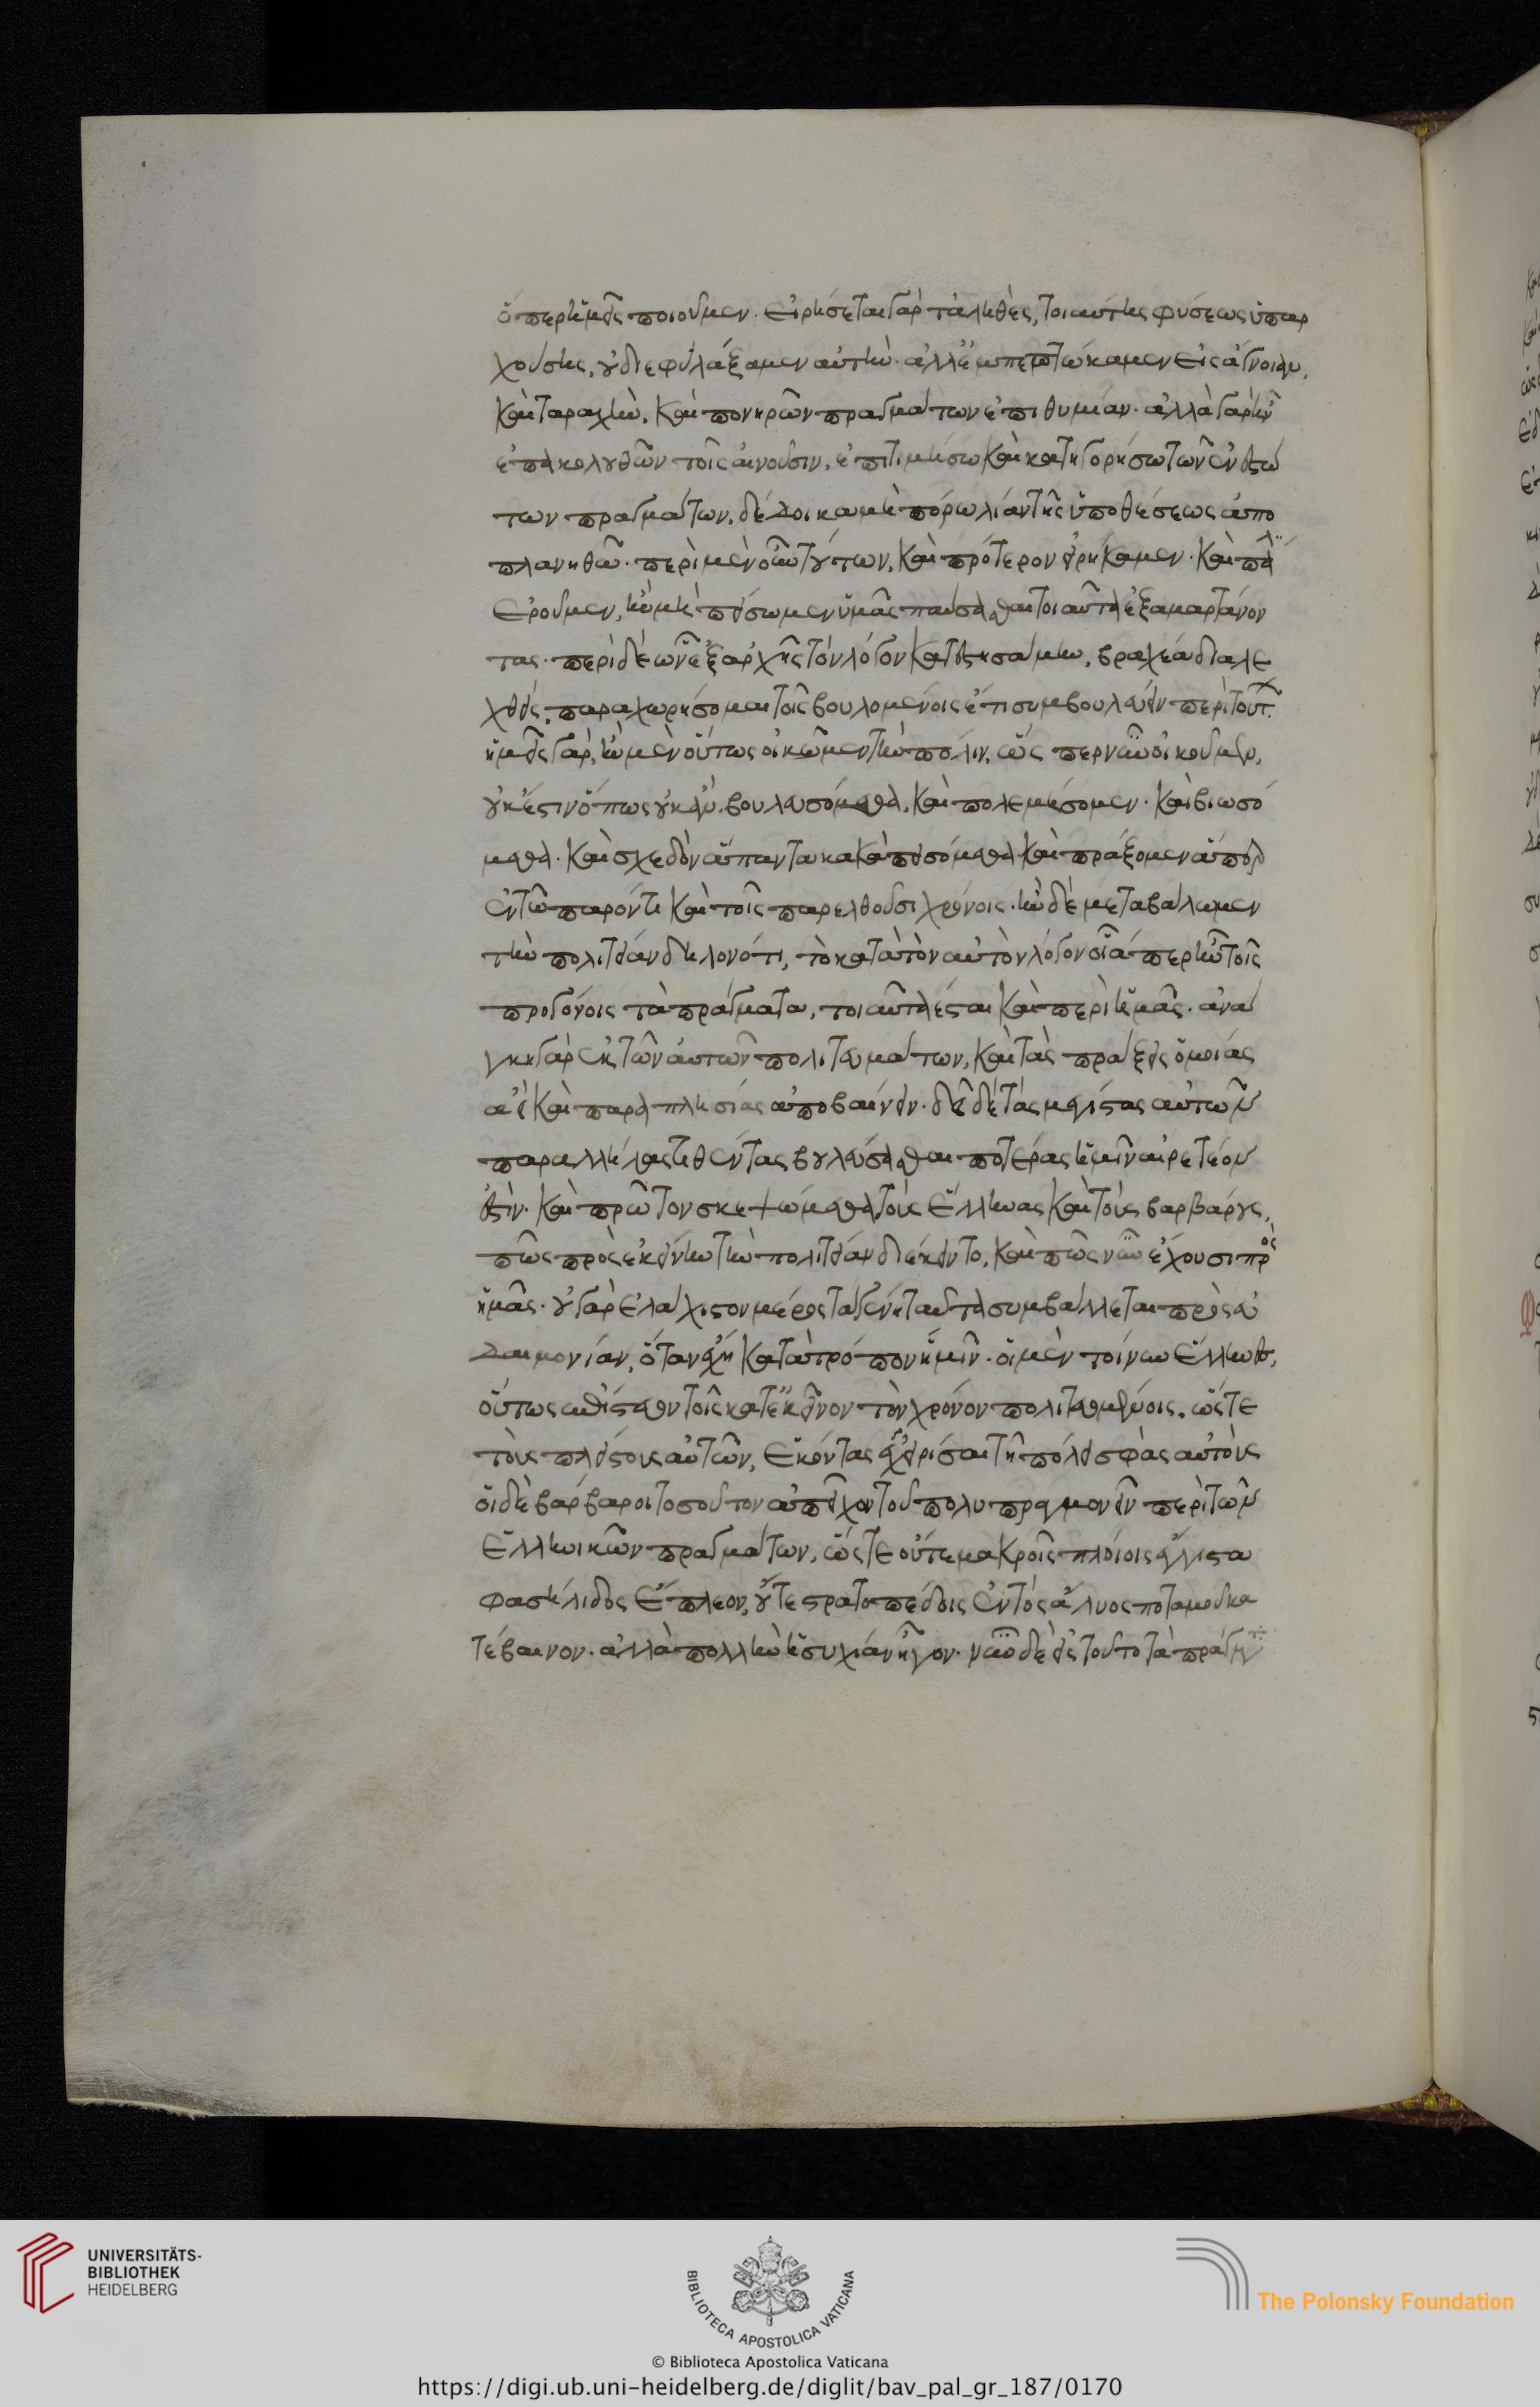 ὅπερ ἡμεῖς ποιοῦμεν. εἰρήσεται γὰρ τἀληθές, τοιαύτης φύσεως ὑπαρ
χούσης, οὐ διεφυλάξαμεν αὐτήν. ἀλλ' ἐμπεπτώκαμεν εἰς ἄγνοιαν,
καὶ ταραχὴν, καὶ πονηρῶν πραγμάτων ἐπιθυμίαν. ἀλλὰ γὰρ ἢν
ἐπακολουθῶν τοῖς αἰνοῦσιν, ἐπιτιμήσω καὶ κατηγορήσω τῶν ἐνεστώ
των πραγμάτων, δέδοικα μὴ πόρω λίαν τῆς ὑποθέσεως ἀπο
πλανηθῶ. περὶ μὲν οὖν τούτων, καὶ πρότερον εἰρήκαμεν. καὶ πάλιν
ἐροῦμεν, ἢν μὴ πείσωμεν ὑμᾶς παύσασθαι τοιαῦτα ἐξαμαρτάνον
τας. περὶ δὲ ὧν ἐξ ἀρχῆς τὸν λόγον κατεστησάμην, βραχέα διαλε
χθεὶς, παραχωρήσομαι τοῖς βουλομένοις ἔτι συμβουλεύειν περὶ τούτων.
ἡμεῖς γὰρ, ἢν μὲν οὕτως οἰκῶμεν τὴν πόλιν, ὥσπερ νῦν οἰκοῦμεν,
οὐκ ἔστιν ὅπως οὐκ ἂν βουλευσόμεθα, καὶ πολεμήσομεν. καὶ βιωσό
μεθα. καὶ σχεδὸν ἅπαντα κακὰ πεισόμεθα καὶ πράξομεν ἅπερ
ἐν τῷ παρόντι καὶ τοῖς παρελθοῦσι χρόνοις. ἢν δὲ μεταβάλωμεν
τὴν πολιτείαν δηλονότι, τὸ κατὰ τὸν αὐτὸν λόγον οἷά περ ἦν τοῖς
προγόνοις τὰ πράγματα, τοιαῦτα ἔσται καὶ περὶ ἡμᾶς. ἀνά
γκη γὰρ ἐκ τῶν αὐτῶν πολιτευμάτων, καὶ τὰς πράξεις ὁμοίας
ἀεὶ καὶ παραπλησίας ἀποβαίνειν. δεῖ δὲ τὰς μεγίστας αὐτῶν
παραλλήλας τεθέντας βουλεύσασθαι ποτέρας ἡμῖν αἱρετέον
ἐστίν. καὶ πρῶτον σκεψώμεθα τοὺς ἕλληνας καὶ τοὺς βαρβάρους,
πῶς πρὸς ἐκείνην τὴν πολιτείαν διέκειντο, καὶ πῶς νῦν ἔχουσι πρὸς
ἡμᾶς. οὐ γὰρ ἐλάχιστον μέρος τὰ γένη ταῦτα συμβάλλεται πρὸς εὐ
δαιμονίαν, ὅταν ἔχη κατὰ τρόπον ἡμῖν. οἱ μὲν τοίνυν ἕλληνες,
οὕτως ἐπίστευον τοῖς κατ' ἐκεῖνον τὸν χρόνον πολιτευομένοις, ὥστε
τοὺς πλείστους αὐτῶν, ἑκόντας ἐγχειρίσαι τῇ πόλει σφᾶς αὐτοὺς
οἱ δὲ βάρβαροι τοσοῦτον ἀπεῖχον τοῦ πολυπραγμονεῖν περὶ τῶν
ἑλληνικῶν πραγμάτων, ὥστε οὔτε μακροῖς πλοίοις
φασήλιδος ἔπλεον, οὔτε στρατοπέδοις ἐντὸς ἅλυος ποταμοῦ κα
τέβαινον. ἀλλὰ πολλὴν ἡσυχίαν ἦγον. νῦν δὲ εἰς τοῦτο τὰ πράγματα
UNIVERSITÄTS-
BIBLIOTHEK
HEIDELBERG
BIBLIOTECA APOSTOLICA VATICANA
The Polonsky Foundation
© Biblioteca Apostolica Vaticana
https://digi.ub.uni-heidelberg.de/diglit/bav_pal_gr_187/0170